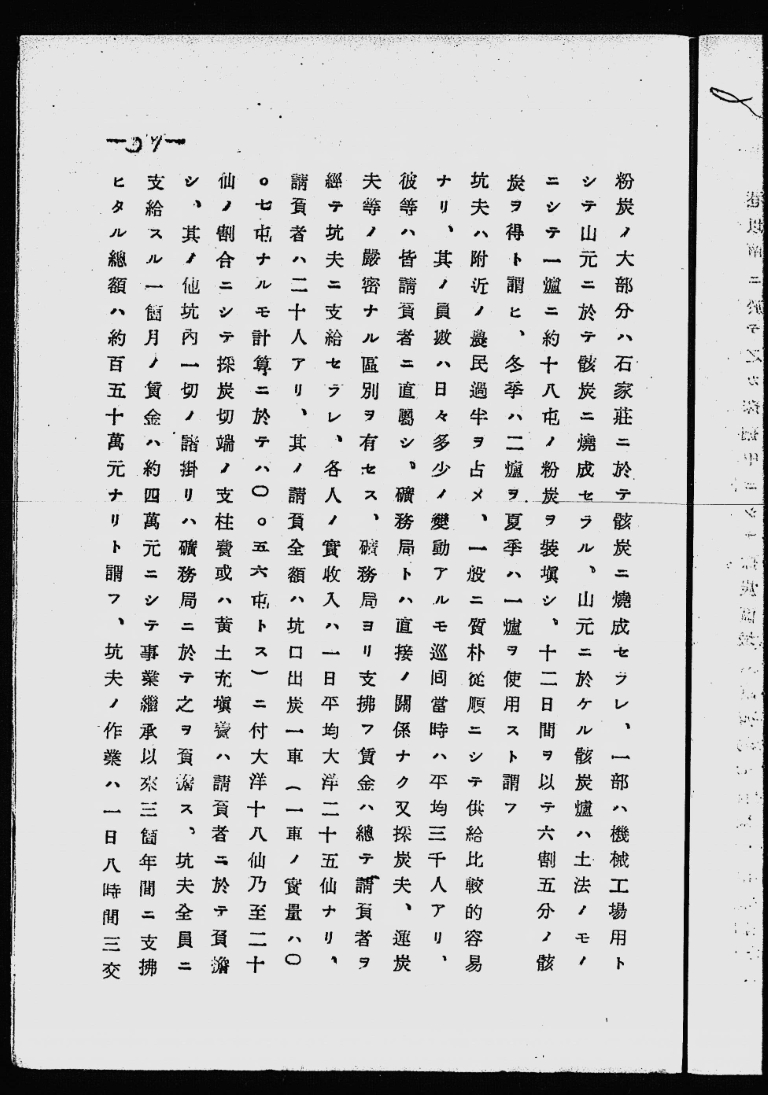 粉炭ノ大部分ハ石家莊ニ於テ骸炭ニ燒成セラレ、一部ハ機械工場用ト
シテ山元ニ於テ骸炭ニ燒成セラル、山元ニ於ケル骸炭爐ハ土法ノモノ
ニシテ一爐ニ約十八屯ノ粉炭ヲ裝塡シ、十二日間ヲ以テ六割五分ノ骸
炭ヲ得ト謂ヒ、冬季ハ二爐ヲ夏季ハ一爐ヲ使用スト謂フ
坑夫ハ附近ノ農民過半ヲ占メ、一般ニ質朴從順ニシテ供給比較的容易
ナリ、其ノ員數ハ日々多少ノ變動アルモ巡囘當時ハ平均三千人アリ、
彼等ハ皆請負者ニ直屬シ、礦務局トハ直接ノ關係ナク又採炭夫、運炭
夫等ノ嚴密ナル區別ヲ有セス、礦務局ヨリ支拂フ賃金ハ總テ請負者ヲ
經テ坑夫ニ支給セラレ、各人ノ實收入ハ一日平均大洋二十五仙ナリ、
請負者ハ二十人アリ、其ノ請負全額ハ坑口出炭一車(一車ノ實量ハ〇
。七屯ナルモ計算ニ於テハ〇。五六屯トス)ニ付大洋十八仙乃至二十
仙ノ割合ニシテ採炭切端ノ支柱費或ハ黃土充塡費ハ請負者ニ於テ負擔
シ、其ノ他坑內一切ノ諸掛リハ礦務局ニ於テ之ヲ負擔ス、坑夫全員ニ
支給スル一箇月ノ賃金ハ約四萬元ニシテ事業繼承以來三箇年間ニ支拂
ヒタル總額ハ約百五十萬元ナリト謂フ、坑夫ノ作業ハ一日八時間三交